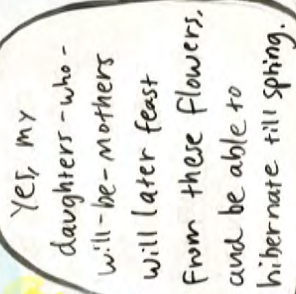 Yes, my
daughters-who-
will-be-mothers
will later feast
from these flowers,
and be able to
hibernate till spring.